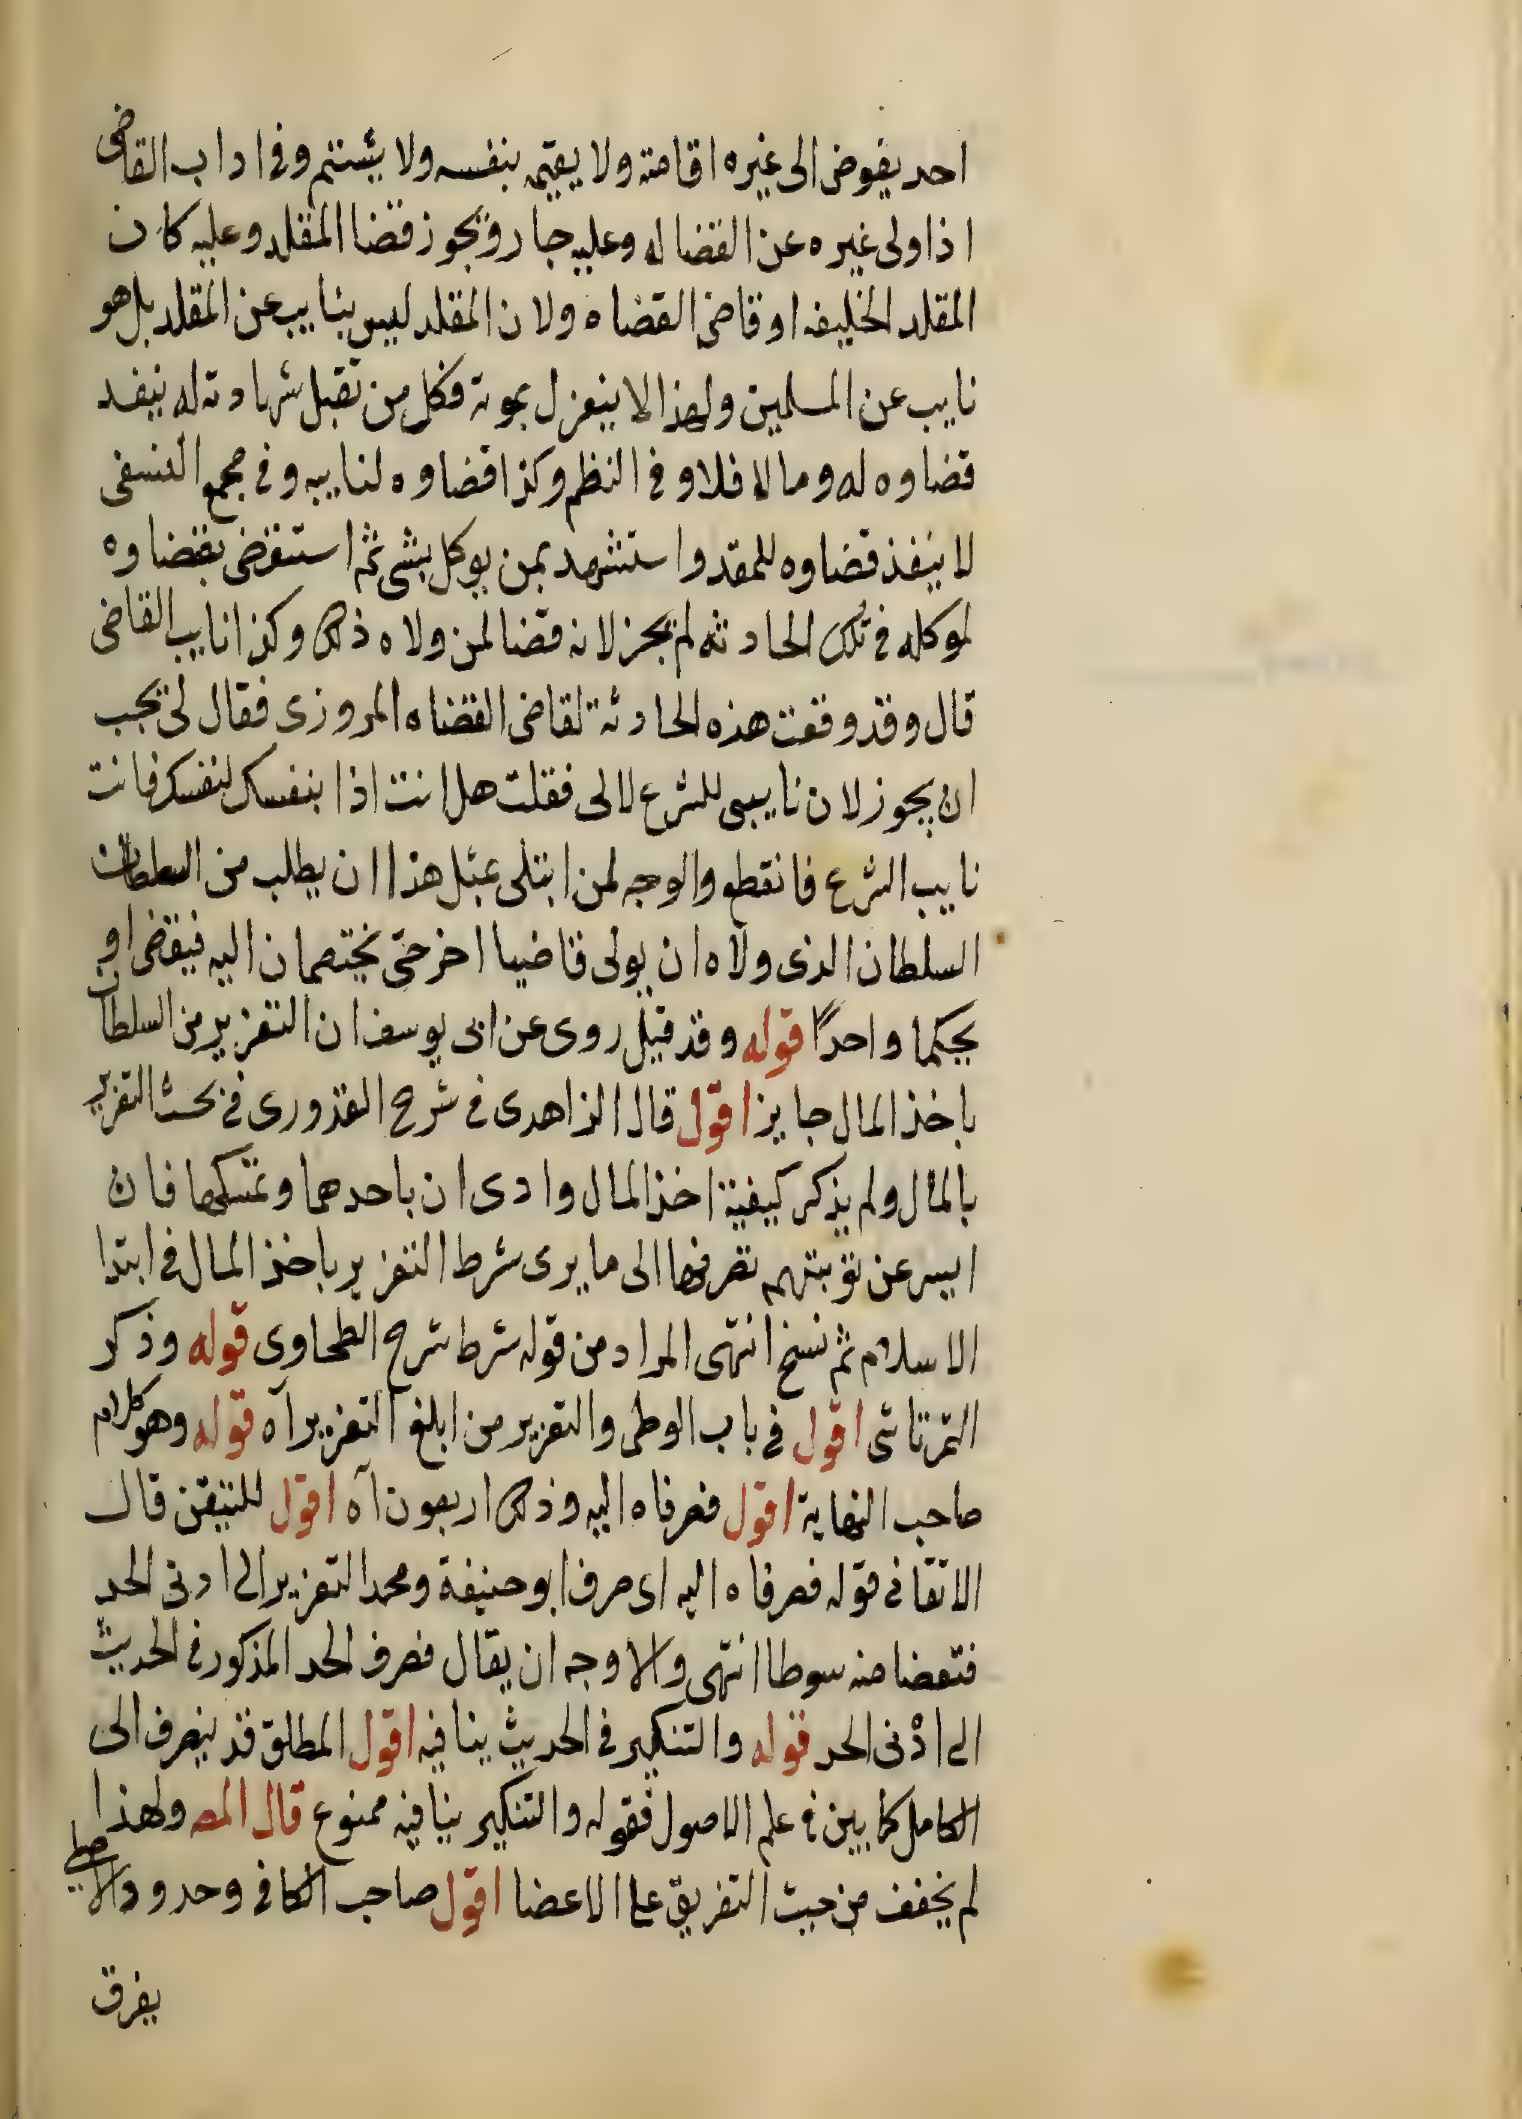 احد يفوض الى غيره اقامته ولا يقيمه بنفسه ولا يشتم وفي اداب القاضى
اذا ولى غيره عن القضا له وعليه جاز ويجوز قضا المقلد وعليه كان
المقلد الخليفه او قاضى القضاه ولان المقلد ليس بنايب عن المقلد بل هو
نايب عن المسلمين ولهذا لا ينعزل بموته فكل من تقبل شهادته له ينفد
قضاوه له وما لا فلا وفى النظم وكذا قضاوه لنايبه وفى مجمع النسفى
لا ينفذ قضاوه للمقد واستشهد بمن يوكل بشى ثم استقضى بقضاوه
لموكله فى تلك الحادثه لم يجز لانه قضا لمن ولاه ذلك وكذا نايب القاضى
قال وقد وقعت هذه الحادثة لقاضى القضاه المروزى فقال لى يجب
ان يجوز لان نايبى للشرع لا لى فقلت هل انت اذا بنفسك لنفسك فانت
نايب الشرع فانقطع والوجه لمن ابتلى بمثل هذا ان يطلب من السلطان
السلطان الذى ولاه ان يولى قاضيا اخر حتى يختصمان اليه فيقضى او
يحكما واحدًا قوله وقد قيل روى عن ابى يوسف ان التعزير من السلطان
باخذ المال جايز اقول قال الزاهدى فى شرح القدورى فى بحث التعزير
بالمال ولم يذكر كيفية اخذ المال وادى ان ياحدها ويمسكها فان
ايس عن توبتهم تصرفها الى ما يرى شرط التعزير باخذ المال فى ابتدا
الاسلام ثم نسخ انتهى المراد من قوله شرط شرح الطحاوى قوله وذكر
التمرتاشى اقول فى باب الوطى والتعزير من ابلغ التعزير آه قوله وهو كلام
صاحب النهاية اقول فصرفاه اليه وذلك اربعون آه اقول للتيقن قال
الاتقانى قوله فصرفاه اليه اى صرف ابو حنيفة ومحمد التعزير الى ادنى الحد
فنقصا منه سوطا انتهى والاوجه ان يقال فصرف الحد المذكور فى الحديث
الى ادنى الحد قوله والتنكير فى الحديث ينافيه اقول المطلق قد ينصرف الى
الكامل كما بين فى علم الاصول فقوله والتنكير ينافيه ممنوع قال المص ولهذا
لم يخفف من حيث التفريق على الاعضا اقول صاحب الكافى وحدود والاصلى
يفرق